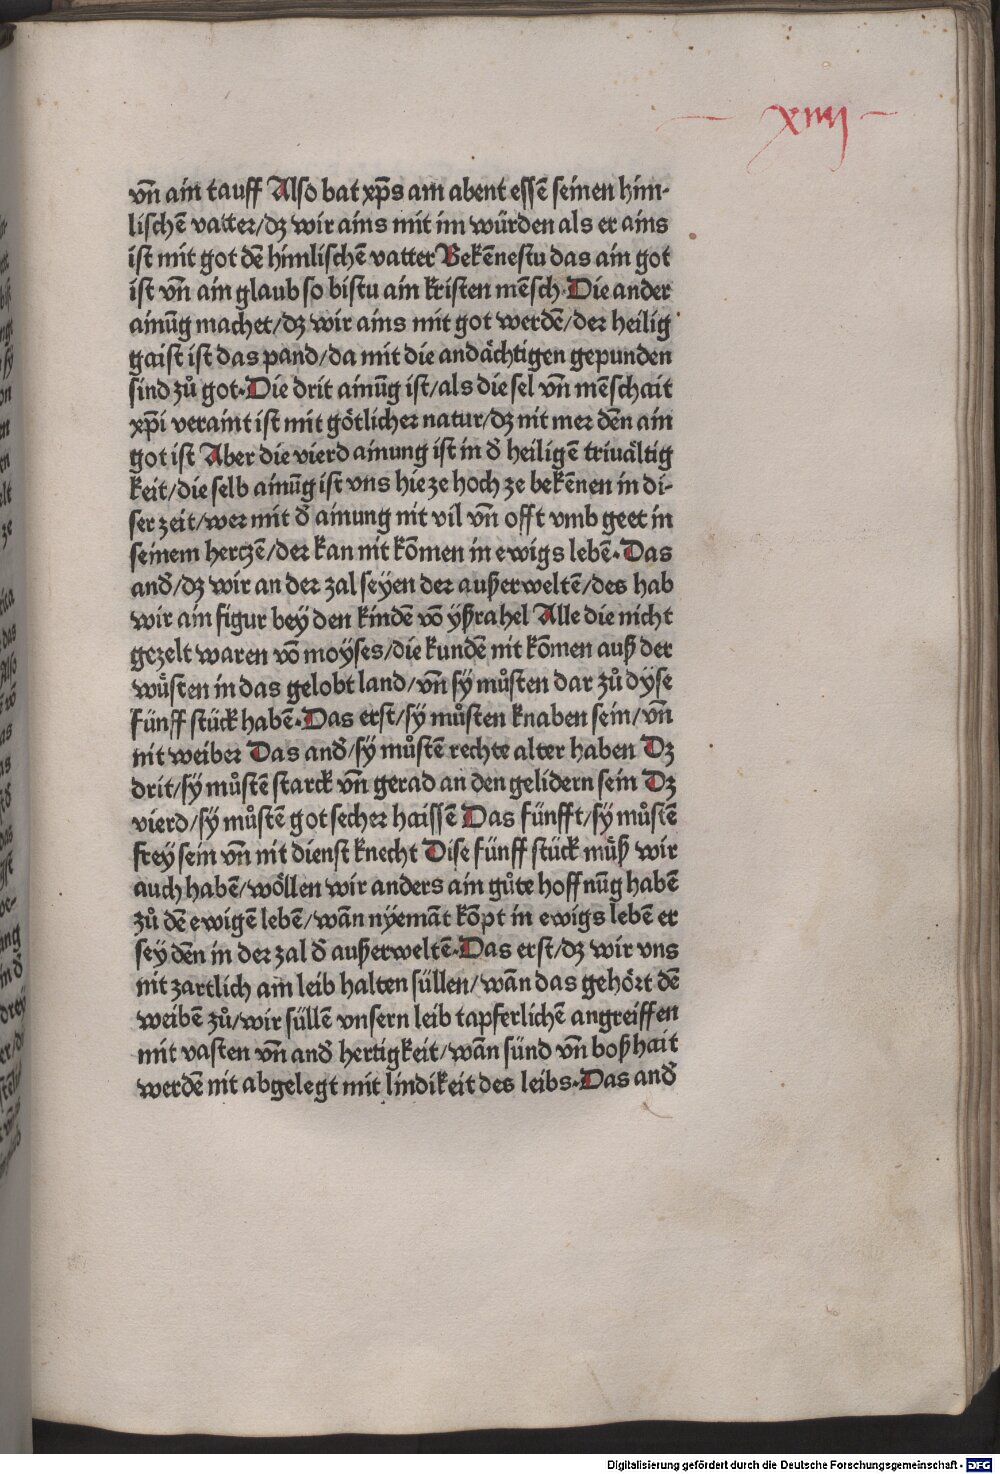 xiiij
vn̄ ain tauff Also bat xp̄s am abent essē seinen him-
lischē vatter/dꝫ wir ains mit im würden als er ains
ist mit got dē himlischē vatter Bekēnestu das ain got
ist vn̄ ain glaub so bistu ain kristen mēsch·Die ander
ainūg machet/dꝫ wir ains mit got werdē/der heilig
gaist ist das pand/da mit die andächtigen gepunden
sind zů got·Die drit ainūg ist/als die sel vn̄ mēschait
xp̄i veraint ist mit götlicher natur/dꝫ nit mer dēn ain
got ist Aber die vierd ainung ist in d̄ heiligē triuältig
keit/die selb ainūg ist vns hie ze hoch ze bekēnen in di-
ser zeit/wer mit d̄ ainung nit vil vn̄ offt vmb geet in
seinem hertzē/der kan nit kōmen in ewigs lebē·Das
and̄/dꝫ wir an der zal seyen der außerweltē/des hab
wir ain figur bey den kindē vō yßrahel Alle die nicht
gezelt waren vō moyses/die kundē nit kōmen auß der
wůsten in das gelobt land/vn̄ sy můsten dar zů dyse
fünff stück habē·Das erst/sy můsten knaben sein/vn̄
nit weiber Das and̄/sy můstē rechte alter haben Dꝫ
drit/sy můstē starck vn̄ gerad an den gelidern sein Dꝫ
vierd/sy můstē got secher haissē Das fünfft/sy můstē
frey sein vn̄ nit dienst knecht Dise fünff stück můß wir
auch habē/wöllen wir anders ain gůte hoffnūg habē
zů dē ewigē lebē/wān nyemāt kōpt in ewigs lebē er
sey dēn in der zal d̄ außerweltē·Das erst/dꝫ wir vns
nit zartlich am leib halten süllen/wān das gehört dē
weibē zů/wir süllē vnsern leib tapferlichē angreiffen
mit vasten vn̄ and̄ hertigkeit/wān sünd vn̄ boßhait
werdē nit abgelegt mit lindikeit des leibs·Das and̄
Digitalisierung gefördert durch die Deutsche Forschungsgemeinschaft - DFG